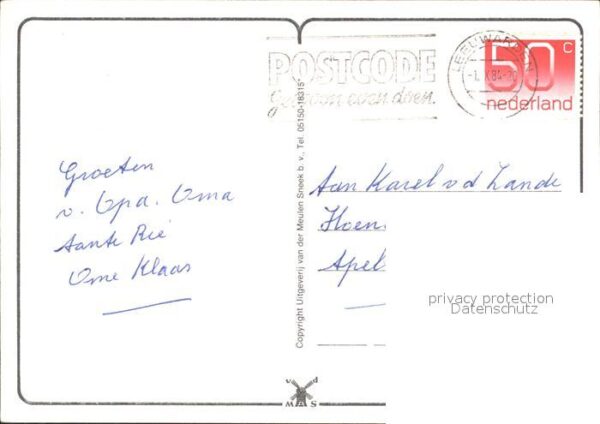 POSTCODE
gewoon even doen.
LEEUWARDEN
50 C
nederland
Groeten
v. Opa. Oma
tante Rie
Ome Klaas
Copyright Uitgeverij van der Meulen Sneek b. v., Tel. 05150-18315
Aan Karel v d Zande
Hoen
Apel
privacy protection
Datenschutz
v d
MAS